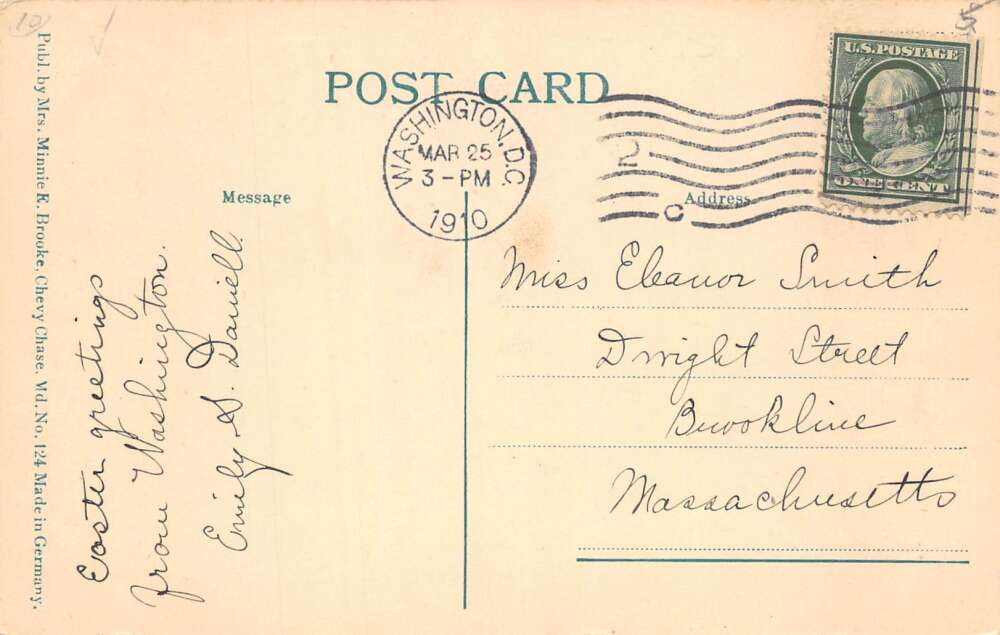 10
5
POST CARD
U.S. POSTAGE
ONE CENT
WASHINGTON, D.C.
MAR 25
3-PM
1910
2
C
Message
Address
Easter greetings
from Washington.
Emily S. Daniell.
Miss Eleanor Smith
Dwight Street
Brookline
Massachusetts
Publ. by Mrs. Minnie K. Brooke, Chevy Chase, Md. No. 124 Made in Germany.